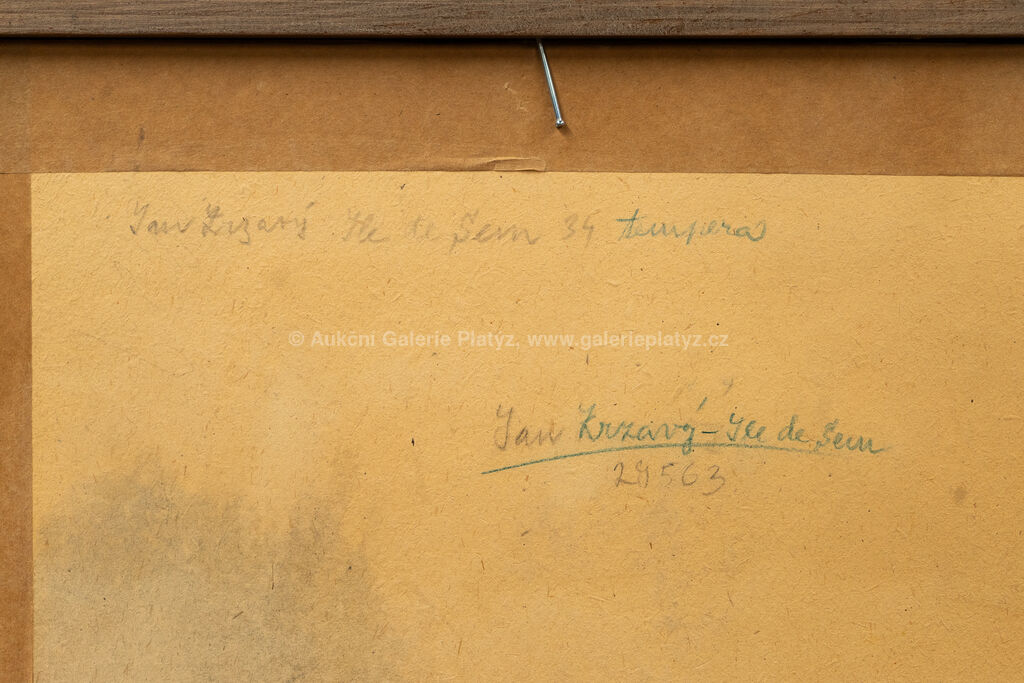 Jan Zrzavý Ile de Šem 34 tempera
© Aukční Galerie Platýz, www.galerieplatyz.cz
Jan Zrzavý – Ile de Šem
24563